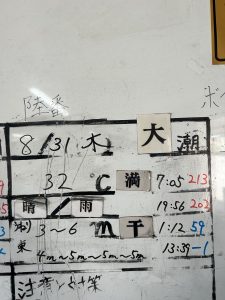 陸番
8/31 木 大 潮
32 ℃ 満 7:05 213
晴/雨 19:56 202
3~6 m 干 1:12 59
東 13:39 -1
4m~5m~5m~5m
注意